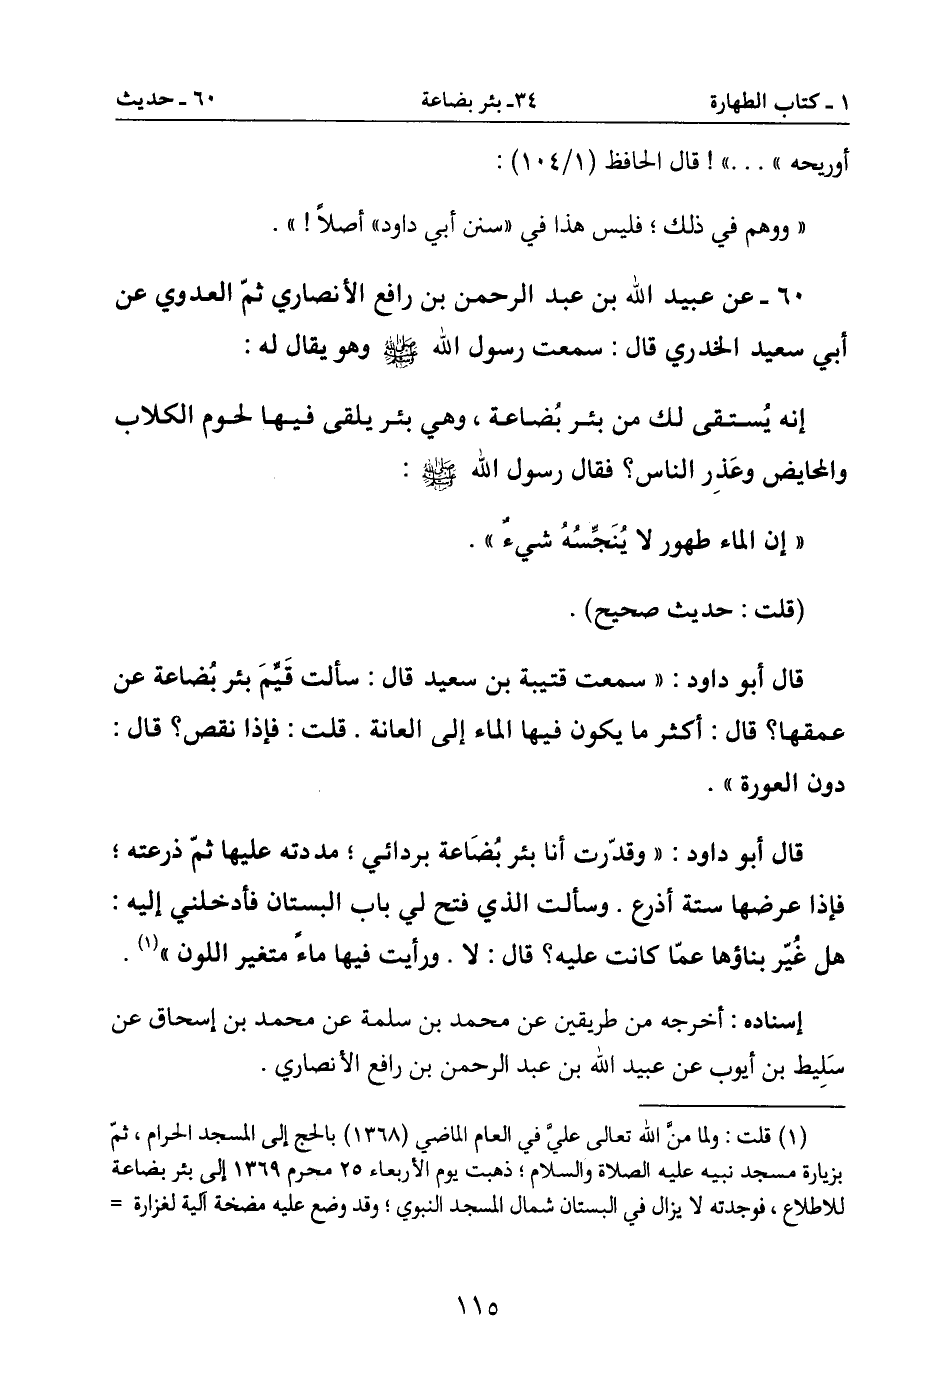 ١ - كتاب الطهارة ٣٤- بئر بضاعة ٦٠ - حديث
أوريحه » . . .» ! قال الحافظ (١/١٠٤) :
« ووهم في ذلك ؛ فليس هذا في «سنن أبي داود» أصلاً ! » .
٦٠ - عن عبيد الله بن عبد الرحمن بن رافع الأنصاري ثمّ العدوي عن
أبي سعيد الخدري قال : سمعت رسول الله ﷺ وهو يقال له :
إنه يُستقى لك من بئر بُضاعة ، وهي بئر يلقى فيها لحوم الكلاب
والمحايض وعَذِر الناس؟ فقال رسول الله ﷺ :
« إن الماء طهور لا يُنَجِّسُهُ شيءٌ » .
(قلت : حديث صحيح) .
قال أبو داود : « سمعت قتيبة بن سعيد قال : سألت قَيِّمَ بئر بُضاعة عن
عمقها؟ قال : أكثر ما يكون فيها الماء إلى العانة . قلت : فإذا نقص؟ قال :
دون العورة » .
قال أبو داود : « وقدّرت أنا بئر بُضَاعة بردائي ؛ مددته عليها ثمّ ذرعته ؛
فإذا عرضها ستة أذرع . وسألت الذي فتح لي باب البستان فأدخلني إليه :
هل غُيّر بناؤها عمّا كانت عليه؟ قال : لا . ورأيت فيها ماءً متغير اللون »(١) .
إسناده : أخرجه من طريقين عن محمد بن سلمة عن محمد بن إسحاق عن
سَلِيط بن أيوب عن عبيد الله بن عبد الرحمن بن رافع الأنصاري .
(١) قلت : ولما منَّ الله تعالى عليَّ في العام الماضي (١٣٦٨) بالحج إلى المسجد الحرام ، ثمّ
بزيارة مسجد نبيه عليه الصلاة والسلام ؛ ذهبت يوم الأربعاء ٢٥ محرم ١٣٦٩ إلى بئر بضاعة
للاطلاع ، فوجدته لا يزال في البستان شمال المسجد النبوي ؛ وقد وضع عليه مضخة آلية لغزارة =
١١٥